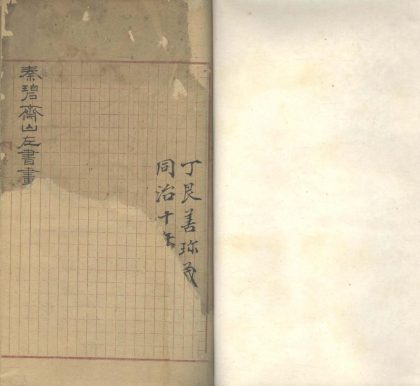 丁艮善珍藏
同治十年
秦碧齋山左書畫